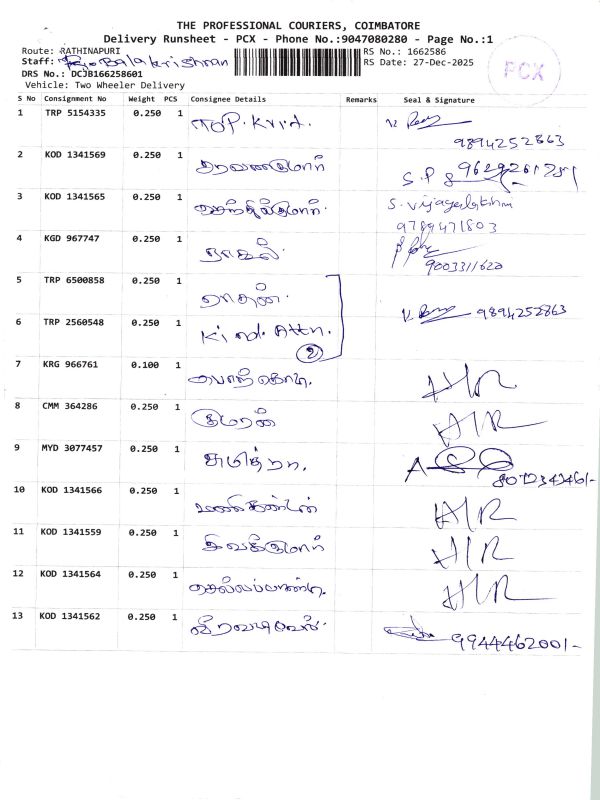 THE PROFESSIONAL COURIERS, COIMBATORE
Delivery Runsheet - PCX - Phone No.:9047080280 - Page No.:1
Route: RATHINAPURI
RS No.: 1662586
Staff: Balakrishnan
RS Date: 27-Dec-2025
PCX
DRS No.: DCJB166258601
Vehicle: Two Wheeler Delivery
S No Consignment No Weight PCS Consignee Details Remarks Seal & Signature
1 TRP 5154335 0.250 1
9894252863
2 KOD 1341569 0.250 1 சரவணகுமார்
3 KOD 1341565 0.250 1 செந்தில்குமார். S. Vijayalakshmi
9789471803
4 KGD 967747 0.250 1
9003311620
5 TRP 6500858 0.250 1
9894252863
6 TRP 2560548 0.250 1 Kind. Attn.
2
7 KRG 966761 0.100 1 பொற்கொடி. H/R
8 CMM 364286 0.250 1 குமரன் H/R
9 MYD 3077457 0.250 1 சுமித்ரா.
10 KOD 1341566 0.250 1 மணிகண்டன் H/R
11 KOD 1341559 0.250 1 சிவக்குமார் H/R
12 KOD 1341564 0.250 1 செல்லப்பாண்டி. H/R
13 KOD 1341562 0.250 1 வீரவடிவேல்.
9944462001-